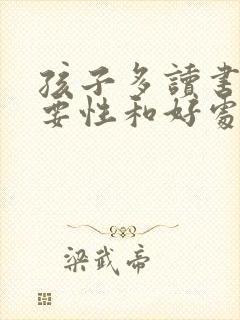 孩子多讀書
要性和好處
梁武帝